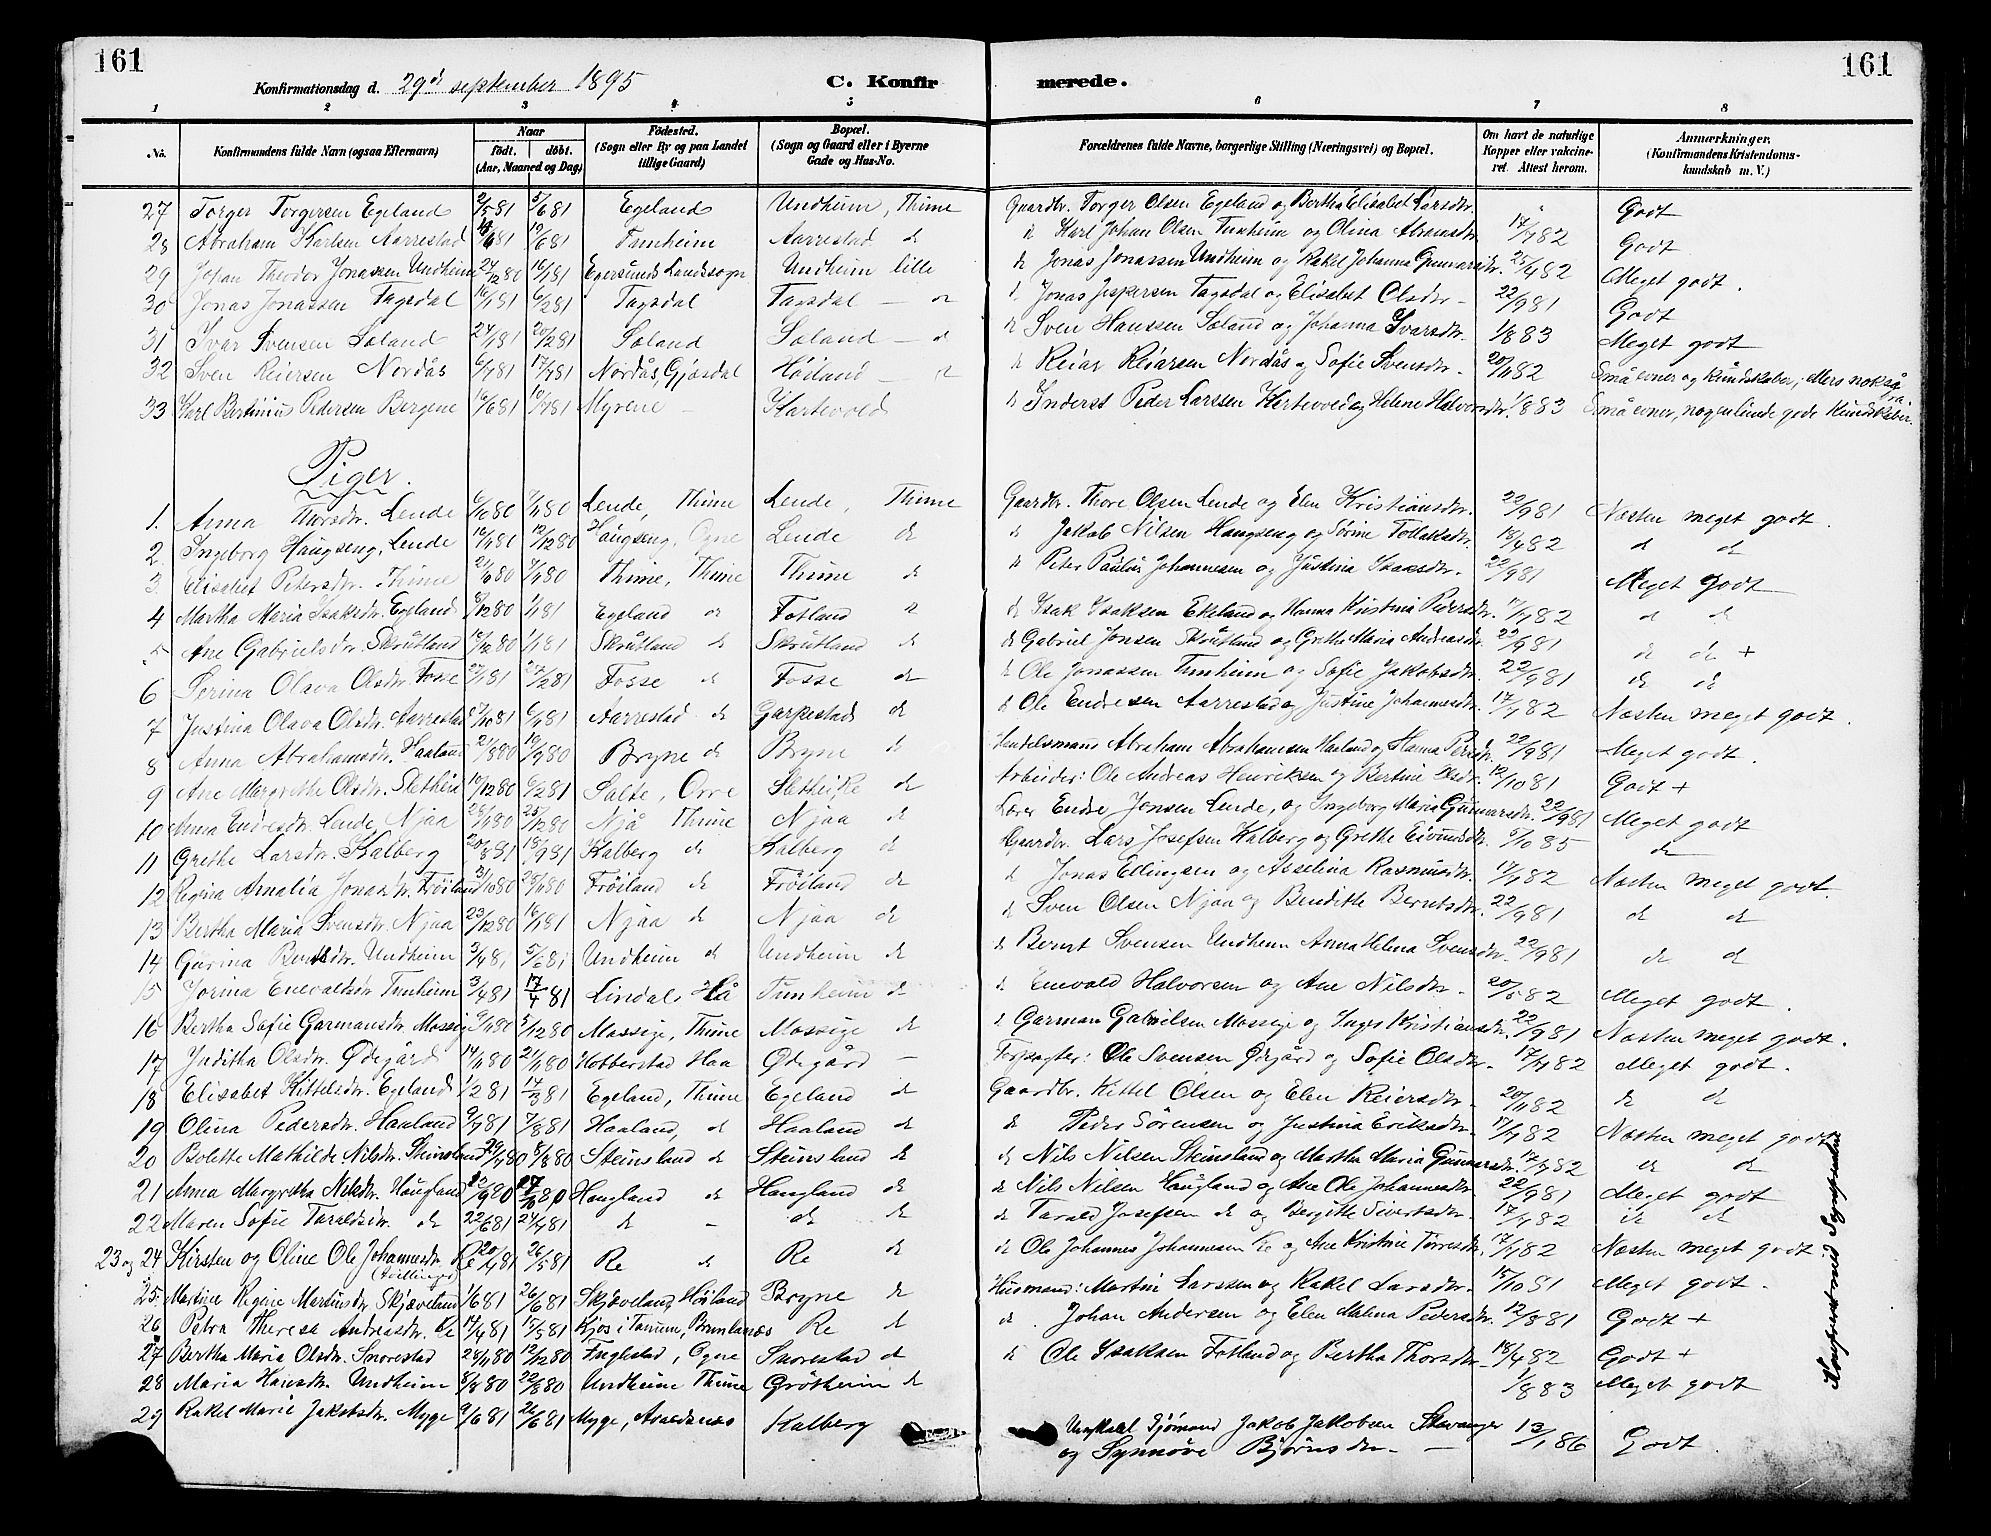 161
Konfirmationsdag d. 29de september 1895
C. Konfirmerede.
161
1 2 3 4 5 6 7 8
No. Konfirmandens fulde Navn (ogsaa Efternavn) Naar födt. döbt. (Aar, Maaned og Dag) Födested. (Sogn eller By og paa Landet tillige Gaard) Bopæl. (Sogn og Gaard eller i Byerne Gade og Hus-No. Forældrenes fulde Navne, borgerlige Stilling (Næringsvei) og Bopæl. Om havt de naturlige Kopper eller vakcineret. Attest herom. Anmærkninger. (Konfirmandens Kristendomskundskab m. V.)
27 Torger Torgersen Egeland 2/5 81 5/6 81 Egeland Undheim, Thime Gaardbr. Torger Olsen Egeland og Bertha Elisabet Larsdtr. " Godt
28 Abraham Karlsen Aarrestad 81 19/6 81 Tunheim Aarrestad do do Karl Johan Olsen Tunheim og Olina Abramsdtr. 17/7 82 Godt
29 Johan Theodor Jonassen Undheim 27/12 80 16/1 81 Egersunds Landsogn Undheim lille do Jonas Jonassen Undheim og Rakel Johanna Gunnarsdtr. 25/4 82 Meget godt.
30 Jonas Jonassen Tagsdal 16/1 81 6/2 81 Tagsdal Tagsdal — do do Jonas Jespersen Tagsdal og Elisabet Olsdtr — 22/9 81 Godt
31 Ivar Svensen Soland 24/1 81 20/2 81 Soland Soland — do do Sven Hanssen Soland og Johanna Ivarsdtr. 1/8 83 Meget godt
32 Sven Reiersen Nordås 6/7 81 17/7 81 Nordås, Gjæsdal Höiland — do do Reiar Reiarsen Nordås og Sofie Svensdtr — 20/11 82 Små evner og kundskaber; Mers nokså bra
33 Karl Bertinius Pedersen Bergene 16/6 81 10/7 81 Myrene — Kartevold do Inderst Peder Larssen Kartevold og Helene Halvorsdtr. 1/8 83 Små evner, nogenlunde gode Kundskaber.
Piger.
1. Anna Thorsdtr. Lende 6/10 80 7/11 80 Lende, Thime Lende, Thime Gaardbr. Thore Olsen Lende og Elen Kristiansdtr. 22/9 81 Næsten meget godt.
2. Ingeborg Haugseng, Lende 16/11 80 12/12 80 Haugseng, Ogne Lende do do Jakob Nilsen Haugseng og Sörine Tollaksdtr. 18/4 82 do do
3. Elisabet Petersdtr. Thime 80 7/11 80 Thime, Thime Thime do do Peter Paulus Johannesen og Justina Isaksdtr. 22/9 81 Meget godt
4 Martha Maria Isaksdtr. Egeland 8/12 80 1/1 81 Egeland do Fotland do do Isak Isaksen Ekeland og Hanna Kristina Pedersdtr. 17/7 82 do do
5 Ane Gabrielsdtr. Skrutland 16/12 80 1/1 81 Skrutland do Skrutland do do Gabriel Jonsen Skrutland og Grethe Maria Andreasdtr. 22/9 81 do do +
6 Serina Olava Olsdtr. Fosse 27/1 81 27/2 81 Fosse do Fosse do do Ole Jonassen Tunheim og Sofie Jakobsdtr. 22/9 81 do do
7 Justina Olava Olsdtr. Aarrestad 81 6/1 81 Aarrestad do Garpestad do do Ole Endresen Aarrestad og Justine Johannesdtr. 17/7 82 Næsten meget godt.
8 Anna Abrahamsdtr. Haaland 21/8 80 19/9 80 Bryne do Bryne do Handelsmand Abraham Abrahamsen Haaland og Hanna Persdtr. 22/9 81 Meget godt.
9 Ane Margrethe Olsdtr. Sletheia 10/12 80 6/2 81 Salte, Orre Sletheie do Arbeider: Ole Andreas Henriksen og Bertine Olsdtr. 12/10 81 Godt +
10 Anna Endresdtr. Lende, Njaa 28/11 80 25/12 80 Njå Thime Njaa do Lærer Endre Jonsen Lende, og Ingeborg Maria Gunnarsdtr. 22/9 81 Meget godt
11 Grethe Larsdtr. Kalberg 20/8 81 18/9 81 Kalberg do Kalberg do Gaardbr. Lars Josefsen Kalberg og Grethe Eivindsdtr. 5/10 85 do
12 Regina Amalia Jonasdtr. Fröiland 31/10 80 28/11 80 Fröiland do Fröiland do do Jonas Ellingsen og Asselina Rasmusdtr. 17/7 82 Næsten meget godt.
13 Bertha Maria Svensdtr. Njaa 23/12 80 16/1 81 Njaa do Njaa do do Sven Olsen Njaa og Bendikte Berntsdtr. 22/9 81 do do
14 Gurina Berntsdtr. Undheim 3/4 81 5/6 81 Undheim do Undheim do do Bernt Svensen Undheim Anna Helena Svensdtr. 22/9 81 do do
15 Jorina Enevaldsdtr Tunheim 3/4 81 17/4 81 Lindal, Hå Tunheim do do Enevald Halvorsen og Ane Nilsdtr — 20/5 82 Meget godt.
16 Bertha Sofie Garmansdtr. Mossige 9/11 80 5/12 80 Mossige, Thime Mossige do do Garman Gabrielsen Mossige og Inger Kristiansdtr. 22/9 81 Næsten meget godt.
17 Juditha Olsdtr. Ødegård 14/11 80 21/11 80 Hobberstad Haa Ødegård — Forpagter: Ole Svensen Ødegård og Sofie Olsdtr — 17/7 82 Meget godt.
18 Elisabet Kittelsdtr. Egeland 1/2 81 14/3 81 Egeland, Thime Egeland do Gaardbr. Kittel Olsen og Elen Reiersdtr — 20/11 82 do do
19 Olina Pedersdtr. Haaland 9/7 81 7/8 81 Haaland, do Haaland do do Peder Sörensen og Justina Eriksdtr. 17/7 82 Næsten meget godt
20 Bolette Mathilde Nilsdtr. Steinsland 29/7 80 8/8 80 Steinsland do Steinsland do do Nils Nilsen Steinsland og Martha Maria Gunnarsdtr. 17/7 82 do do
21 Anna Margretha Nilsdtr. Haugland 9 80 80 Haugland do Haugland do do Nils Nilsen Haugland og Ane Ole Johannesdtr. 22/9 81 Meget godt
22 Maren Sofie Taraldsdtr. do 22/6 81 24/7 81 do — do do do Tarald Josefsen do og Bergitte Sivertsdtr. 17/7 82 do do
23 og 24 Kirsten og Oline Ole Johannesdtr Re (Tvillinger) 20/4 81 26/5 81 Re do Re do do Ole Johannes Johannesen Re og Ane Kristine Torresdtr. 17/7 82 Næsten meget godt.
25 Martine Regine Martinsdtr Skjæveland 1/6 81 26/6 81 Skjæveland, Höiland Bryne do Husmand: Martin Larssen og Rakel Larsdtr. 15/10 81 Meget godt.
26 Petra Theresa Andreasdtr. Re 14/4 81 15/5 81 Kjös i Tanum, Brunlanæs Re do do. Johan Andersen og Elen Malena Pedersdtr. 12/8 81 Godt +
27 Bertha Maria Olsdtr. Snorestad 28/11 80 12/12 80 Fuglestad, Ogne Snorestad do do Ole Isaksen Fotland og Bertha Thorsdtr — 18/4 82 Godt +
28 Maria Hansdtr. Undheim 8/8 80 22/8 80 Undheim Thime Grötheim do 1/8 83 Meget godt
29 Rakel Marie Jakobsdtr. Myge 9/6 81 26/6 81 Myge, Avaldsnæs Kalberg Ungkarl Sjömand Jakob Jakobsen Stavanger og Synnöve Björnsdtr — — 13/1 86 Godt.
Konfereret med Sogneprestens